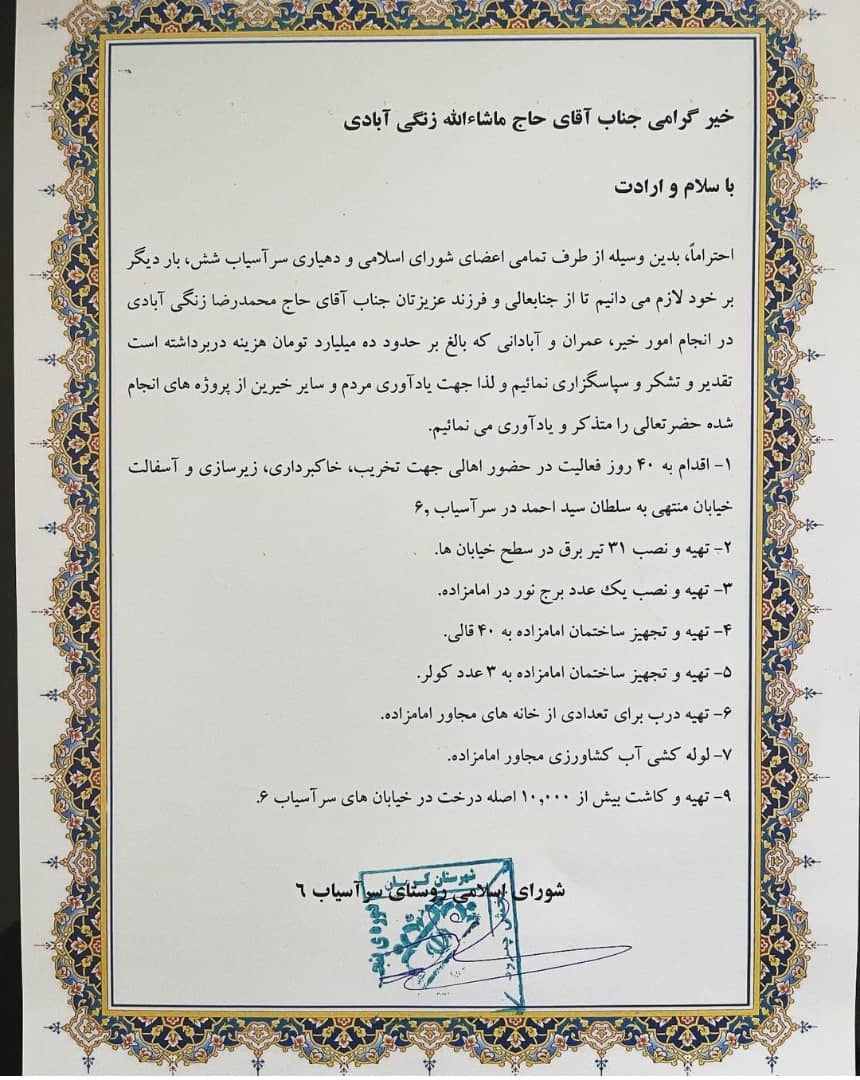 خیر گرامی جناب آقای حاج ماشاءالله زنگی آبادی
با سلام و ارادت
احتراماً، بدین وسیله از طرف تمامی اعضای شورای اسلامی و دهیاری سرآسیاب شش، بار دیگر
بر خود لازم می دانیم تا از جنابعالی و فرزند عزیزتان جناب آقای حاج محمدرضا زنگی آبادی
در انجام امور خیر، عمران و آبادانی که بالغ بر حدود ده میلیارد تومان هزینه دربرداشته است
تقدیر و تشکر و سپاسگزاری نمائیم و لذا جهت یادآوری مردم و سایر خیرین از پروژه های انجام
شده حضرتعالی را متذکر و یادآوری می نمائیم.
۱- اقدام به ۴۰ روز فعالیت در حضور اهالی جهت تخریب، خاکبرداری، زیرسازی و آسفالت
خیابان منتهی به سلطان سید احمد در سرآسیاب ۶,
۲- تهیه و نصب ۳۱ تیر برق در سطح خیابان ها.
۳- تهیه و نصب یک عدد برج نور در امامزاده.
۴- تهیه و تجهیز ساختمان امامزاده به ۴۰ قالی.
۵- تهیه و تجهیز ساختمان امامزاده به ۳ عدد کولر.
۶- تهیه درب برای تعدادی از خانه های مجاور امامزاده.
۷- لوله کشی آب کشاورزی مجاور امامزاده.
۹- تهیه و کاشت بیش از ۱۰,۰۰۰ اصله درخت در خیابان های سرآسیاب ۶.
شهرستان کرمان
شورای اسلامی روستای سرآسیاب ۶